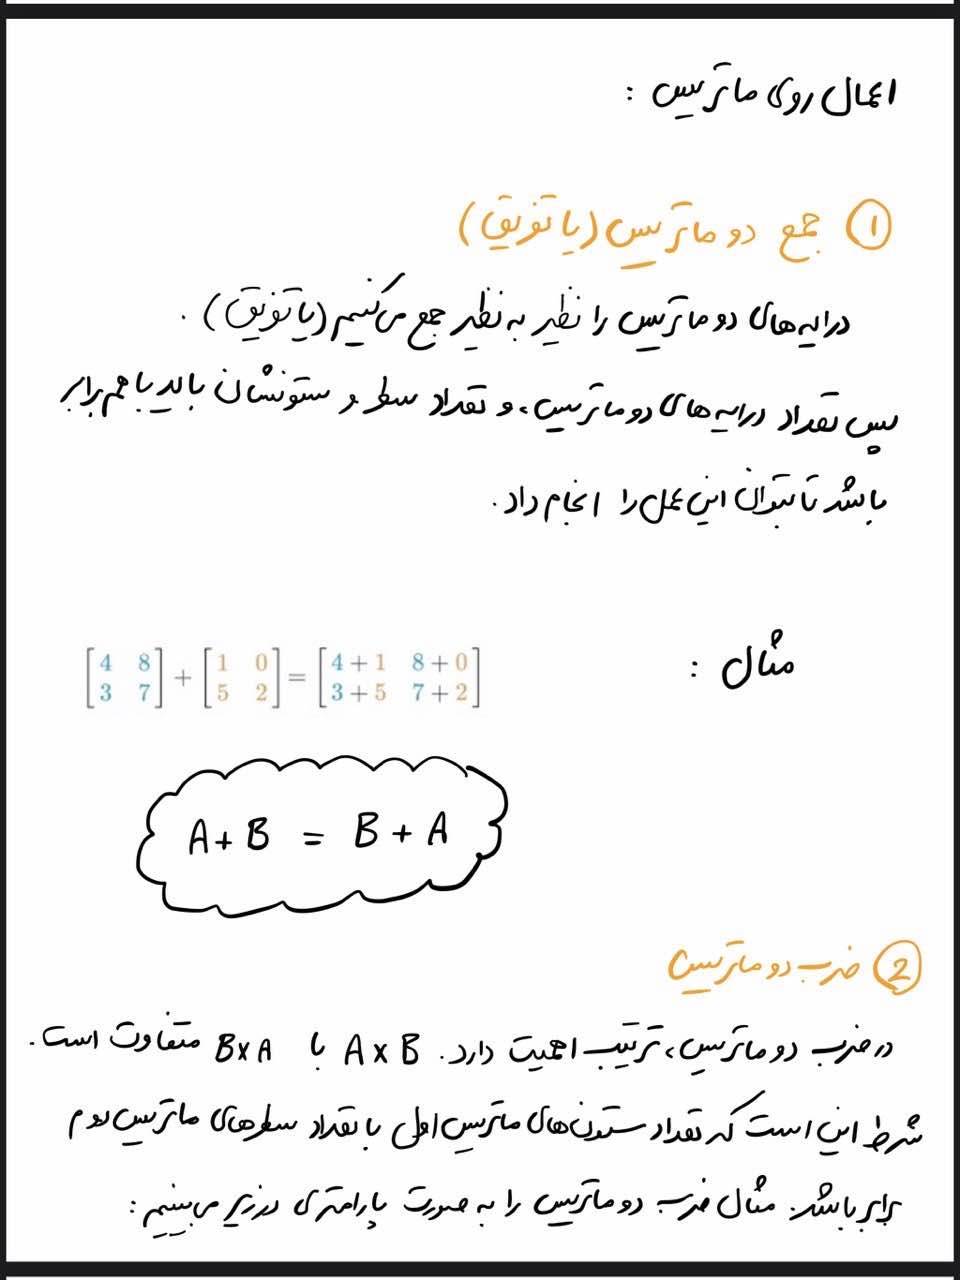 اعمال روی ماتریس :
① جمع دو ماتریس (یا تفریق)
درایه‌های دو ماتریس را نظیر به نظیر جمع می‌کنیم (یا تفریق) .
پس تعداد درایه‌های دو ماتریس، و تعداد سطر و ستونشان باید با هم برابر
باشد تا بتوان این عمل را انجام داد.
مثال :
[4 8 / 3 7] + [1 0 / 5 2] = [4 + 1 8 + 0 / 3 + 5 7 + 2]
A + B = B + A
② ضرب دو ماتریس
در ضرب دو ماتریس، ترتیب اهمیت دارد. A x B با B x A متفاوت است.
شرط این است که تعداد ستون‌های ماتریس اول با تعداد سطرهای ماتریس دوم
برابر باشد. مثال ضرب دو ماتریس را به صورت پارامتری در زیر می‌بینیم: